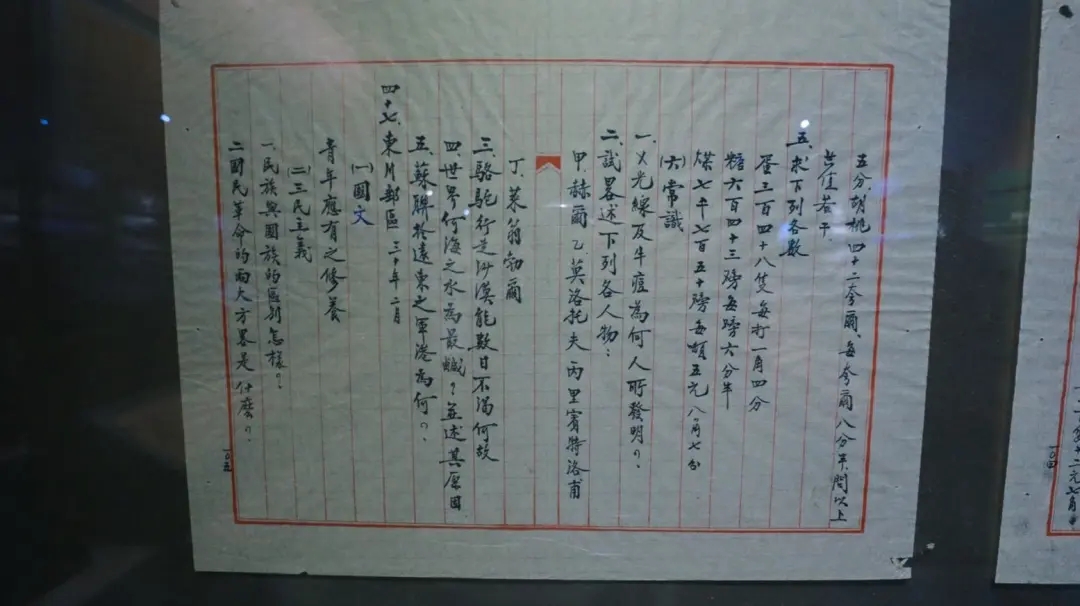 五分，胡桃四十二夸爾，每夸爾八分半問以上
共值若干．
五、求下列各數
蛋三百四十八隻每打一角四分
糖六百四十三磅每磅六分半
煤七千七百五十磅每噸五元八角七分
(六)常識
一、X光線及牛痘為何人所發明？
二、試畧述下列各人物：
甲．赫爾 乙．莫洛托夫 丙．里賓特洛甫
丁．萊翁勃爾
三．駱駝行走沙漠能數日不渴何故
四．世界何海之水為最鹹？並述其原因
五．蘇聯於遠東之軍港為何？
四十七、東川郵區 三十年 二月
(一)國文
青年應有之修養
(二)三民主義
一、民族與國族的區別怎樣？
二國民革命的兩大方畧是什麽？
一〇五
一〇四